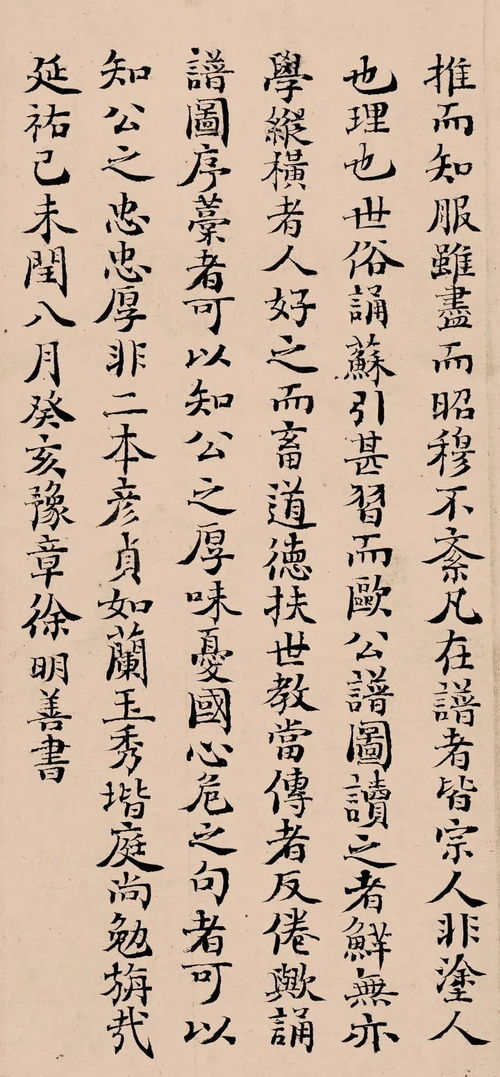 推而知服雖盡而昭穆不紊凡在譜者皆宗人非塗人
也理也世俗誦蘇引甚習而歐公譜圖讀之者鮮無亦
學縱橫者人好之而畜道德扶世教當傳者反倦歟誦
譜圖序藁者可以知公之厚味憂國心危之句者可以
知公之忠忠厚非二本彥貞如蘭玉秀堦庭尚勉旃哉
延祐己未閏八月癸亥豫章徐明善書